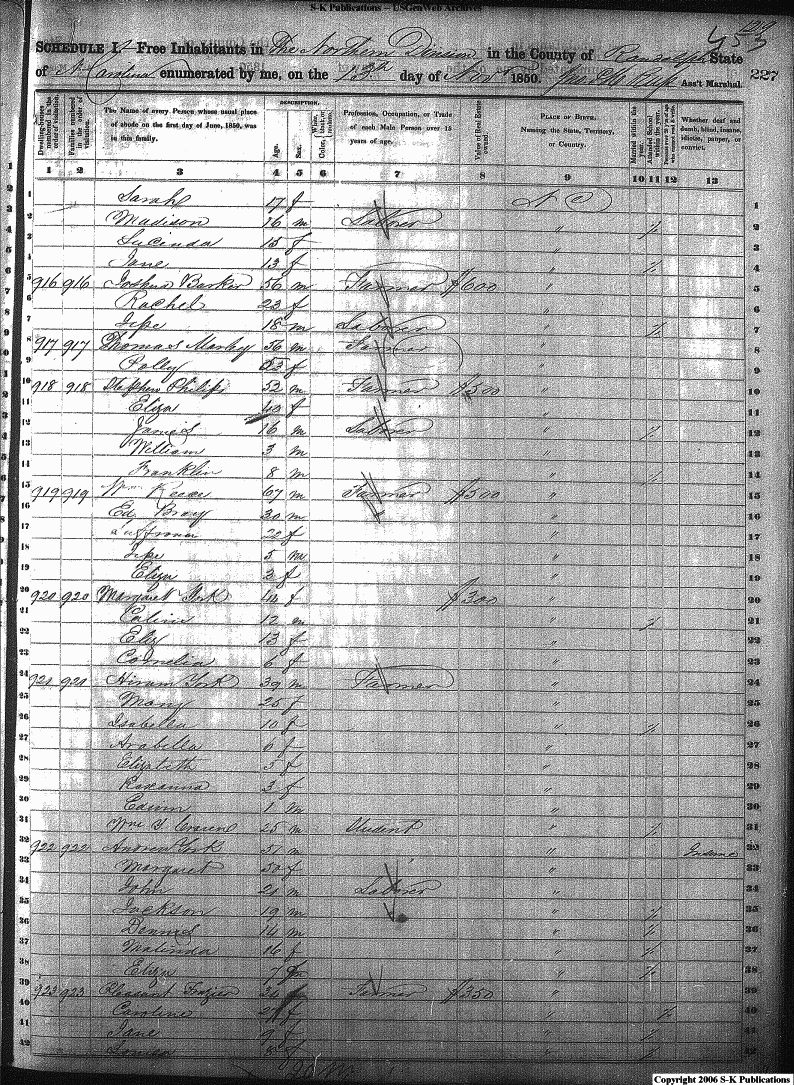 S-K Publications -- USGenWeb Archives
SCHEDULE I.—Free Inhabitants in The Northern Division in the County of Randolph State
of N. Carolina enumerated by me, on the 13th day of Novr 1850. Ass't Marshal.
227
Dwelling-houses numbered in the order of visitation.
Families numbered in the order of visitation.
The Name of every Person whose usual place of abode on the first day of June, 1850, was in this family.
DESCRIPTION.
Age.
Sex.
White, black, or mulatto.
Color,
Profession, Occupation, or Trade of each Male Person over 15 years of age.
Value of Real Estate owned.
PLACE OF BIRTH. Naming the State, Territory, or Country.
Married within the year.
Attended School within the year.
Whether deaf and dumb, blind, insane, idiotic, pauper, or convict.
1 2 3 4 5 6 7 8 9 10 11 12 13
1 Sarah 17 f N C 1
2 Madison 16 m Laborer " / 2
3 Lucinda 15 f " 3
4 Jane 13 f " / 4
5 916 916 Joshua Barker 56 m Farmer $600 " 5
6 Rachel 23 f " 6
7 18 m Laborer " / 7
8 917 917 Thomas Marley 56 m Farmer " 8
9 Polly 53 f " 9
10 918 918 Stephen Philips 52 m Farmer $500 " 10
11 Eliza 43 f " 11
12 James 16 m Laborer " / 12
13 William 3 m " 13
14 Franklin 8 m " / 14
15 919 919 Wm 67 m Farmer $500 " 15
16 Ed Bray 30 m " 16
17 22 f " 17
18 5 m " 18
19 Eliza 2 f " 19
20 920 920 Margaret York 44 f $300 " 20
21 12 m " / 21
22 Eliz 13 f " 22
23 Cornelia 6 f " 23
24 921 921 Hiram York 39 m Farmer " 24
25 Mary 25 f " 25
26 Isabella 10 f " / 26
27 Arabella 6 f " 27
28 Elizabeth 5 f " 28
29 Roxanna 3 f " 29
30 Edwin 1 m " 30
31 Wm Y. Craven 25 m Student " / 31
32 922 922 Andrew York 51 m " Insane 32
33 Margaret 50 f " 33
34 John 21 m Laborer " 34
35 Jackson 19 m " / 35
36 Dennis 14 m " / 36
37 Malinda 16 f " / 37
38 Eliza 7 f " / 38
39 923 923 Pleasant Frazier 34 m Farmer $350 " 39
40 Caroline 27 f " / 40
41 Jane 9 f " / 41
42 Louisa f " / 42
Copyright 2006 S-K Publications